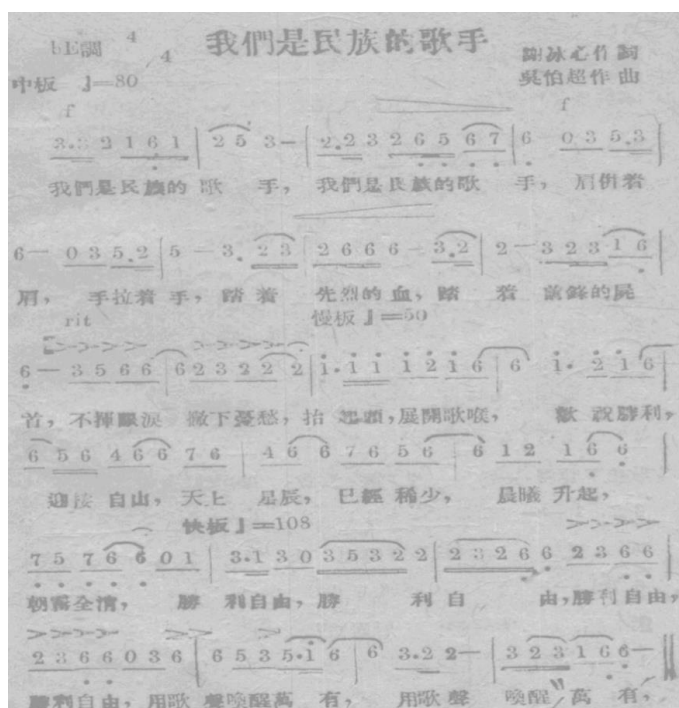 我們是民族的歌手
bE調 4/4
謝冰心作詞
中板 ♩=80
吳伯超作曲
f f
3.3 2 1 6 1 | 2 5 3— | 2.2 3 2 6 5 6 7 | 6 0 3 5.3 |
我們是民族的歌手，我們是民族的歌手，肩併着
6— 0 3 5.2 | 5 — 3. 2 3 | 2 6 6 6 — 3.2 | 2 — 3 2 3 1 6 |
肩，手拉着手，踏着先烈的血，踏着前鋒的屍
rit 慢板 ♩=50
6 — 3 5 6 6 | 6 2 3 2 2 2 | 1. 1 1 1 2 1 6 | 6 1. 2 1 6 |
首，不揮眼淚撇下憂愁，抬起頭，展開歌喉，歡祝勝利，
6 5 6 4 6 6 7 6 | 4 6 6 7 6 5 6 | 6 1 2 1 6 6 |
迎接自由，天上星辰，已經稀少，晨曦升起，
快板 ♩=108
7 5 7 6 6 0 1 | 3.1 3 0 3 5 3 2 2 | 2 3 2 6 6 2 3 6 6 |
朝霧全清，勝利自由，勝利自由，勝利自由，
2 3 6 6 0 3 6 | 6 5 3 5.1 6 | 6 3.2 2— | 3 2 3 1 6 6— ||
勝利自由，用歌聲喚醒萬有，用歌聲喚醒萬有，